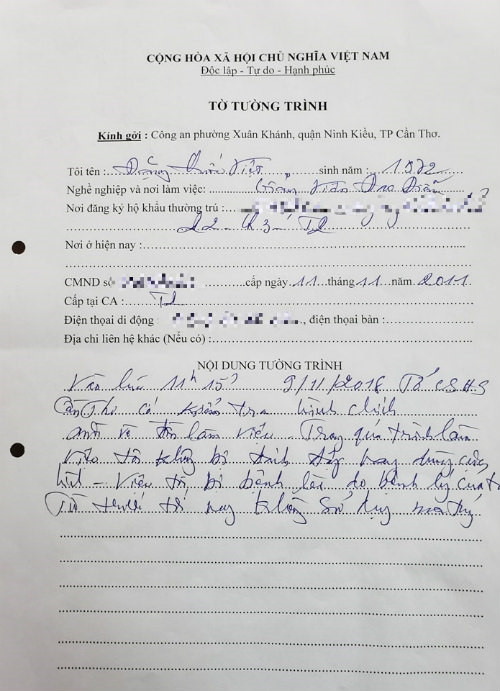 CỘNG HÒA XÃ HỘI CHỦ NGHĨA VIỆT NAM
Độc lập - Tự do - Hạnh phúc
TỜ TƯỜNG TRÌNH
Kính gởi : Công an phường Xuân Khánh, quận Ninh Kiều, TP Cần Thơ.
Tôi tên : Đặng Quốc Việt sinh năm : 1972
Nghề nghiệp và nơi làm việc:
Nơi đăng ký hộ khẩu thường trú :
Nơi ở hiện nay :
CMND số cấp ngày 11 tháng 11 năm 2011
Cấp tại CA :
Điện thoại di động : , điện thoại bàn :
Địa chỉ liên hệ khác (Nếu có) :
NỘI DUNG TƯỜNG TRÌNH
Vào lúc 11h15' 9/11/2018 Tổ CSHS
Cần Thơ có kiểm tra hành chính
mời về làm việc. Trong quá trình làm
việc tôi không bị đánh đập hay dùng cứng
Việc tôi bị bệnh là do bệnh lý của t
Từ trước tới nay không sử dụng ma túy